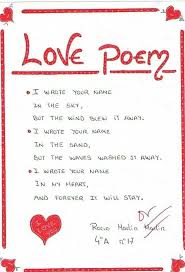 LOVE POEM
• I WROTE YOUR NAME
IN THE SKY,
BUT THE WIND BLEW IT AWAY.
• I WROTE YOUR NAME
IN THE SAND,
BUT THE WAVES WASHED IT AWAY.
• I WROTE YOUR NAME
IN MY HEART,
AND FOREVER IT WILL STAY.
Rocio Media
4°A nº17
I Love